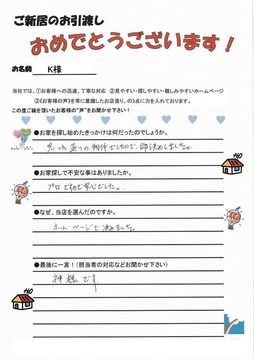 ご新居のお引渡し
おめでとうございます!
お名前 K様
当社では、①お客様への迅速、丁寧な対応 ②見やすい・探しやすい・親しみやすいホームページ
③《お客様の声》を常に意識したお店造り。の3点に力を入れております。
この度ご縁を頂いたお客様の“声”お聞かせ下さい!
●お家を探し始めたきっかけは何だったのでしょうか。
思った通りの物件でしたので、即決めしました。
●お家探しで不安な事はありましたか。
プロですので安心でした。
●なぜ、当店を選んだのですか。
ホームページで決めました。
●最後に一言!(担当者の対応などお聞かせ下さい)
神様です